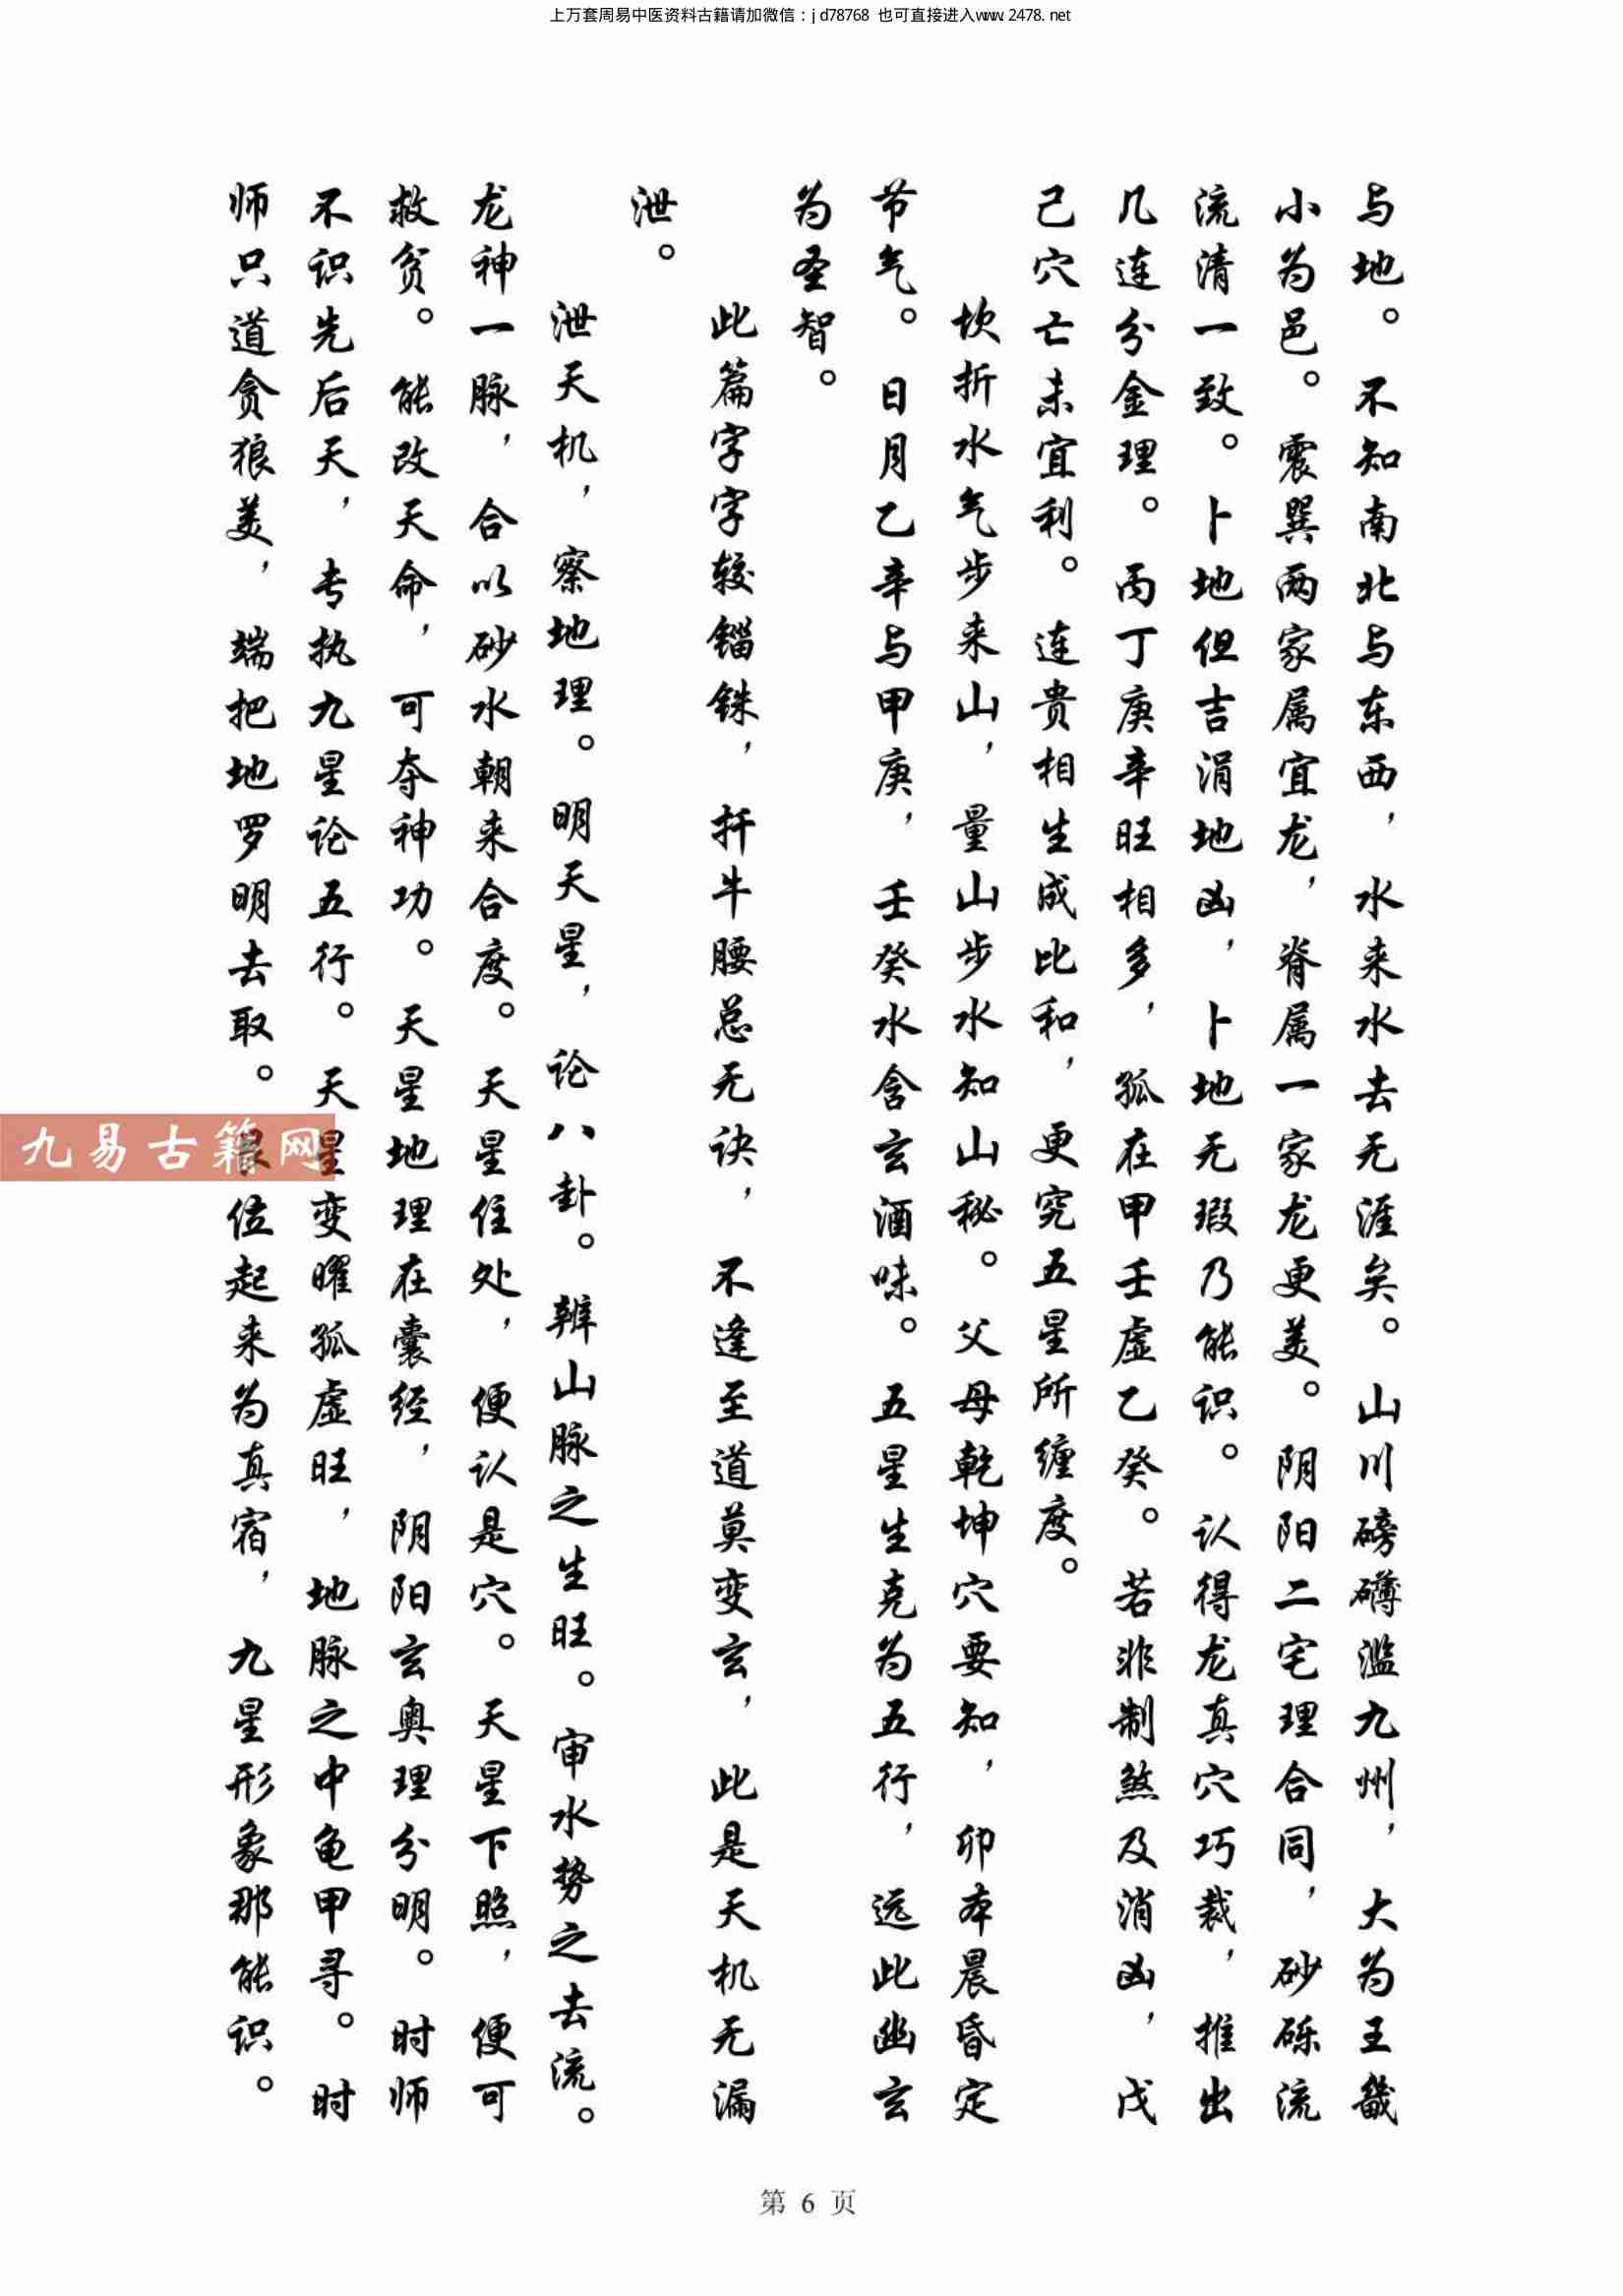 上万套周易中医资料古籍请加微信：jd78768 也可直接进入www.2478.net
与地。不知南北与东西，水来水去无涯矣。山川磅礴滥九州，大为王畿
小为邑。震巽两家属宜龙，脊属一家龙更美。阴阳二宅理合同，砂砾流
流清一致。卜地但吉涓地凶，卜地无瑕乃能识。认得龙真穴巧裁，推出
几连分金理。丙丁庚辛旺相多，孤在甲壬虚乙癸。若非制煞及消凶，戊
己穴亡未宜利。连贵相生成比和，更究五星所缠度。
坎折水气步来山，量山步水知山秘。父母乾坤穴要知，卯本晨昏定
节气。日月乙辛与甲庚，壬癸水含玄酒味。五星生克为五行，远此幽玄
为圣智。
此篇字字较锱铢，扦牛腰总无诀，不逢至道莫变玄，此是天机无漏
泄。
泄天机，察地理。明天星，论八卦。辨山脉之生旺。审水势之去流。
龙神一脉，合以砂水朝来合度。天星住处，便认是穴。天星下照，便可
救贫。能改天命，可夺神功。天星地理在囊经，阴阳玄奥理分明。时师
不识先后天，专执九星论五行。天星变曜孤虚旺，地脉之中龟甲寻。时
师只道贪狼美，端把地罗明去取。位起来为真宿，九星形象那能识。
九易古籍网
第 6 页